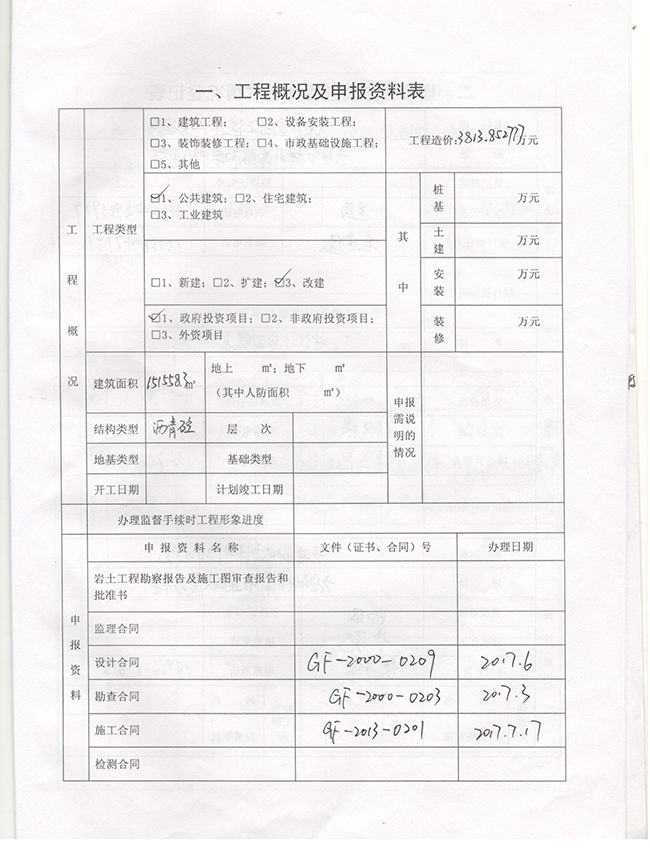 一、工程概况及申报资料表
工程概况
工程类型
□1、建筑工程； □2、设备安装工程；
□3、装饰装修工程；□4、市政基础设施工程；
□5、其他
工程造价:3813.852777万元
☑1、公共建筑；□2、住宅建筑；
□3、工业建筑
□1、新建；□2、扩建；☑3、改建
☑1、政府投资项目；□2、非政府投资项目；
□3、外资项目
其中
桩基
万元
土建
万元
安装
万元
装修
万元
建筑面积
151558.3㎡
地上 ㎡；地下 ㎡
（其中人防面积 ㎡）
申报需说明的情况
结构类型
沥青砼
层 次
地基类型
基础类型
开工日期
计划竣工日期
办理监督手续时工程形象进度
申报资料
申 报 资 料 名 称
文件（证书、合同）号
办理日期
岩土工程勘察报告及施工图审查报告和
批准书
监理合同
设计合同
GF-2000-0209
2017.6
勘查合同
GF-2000-0203
2017.3
施工合同
GF-2013-0201
2017.7.17
检测合同